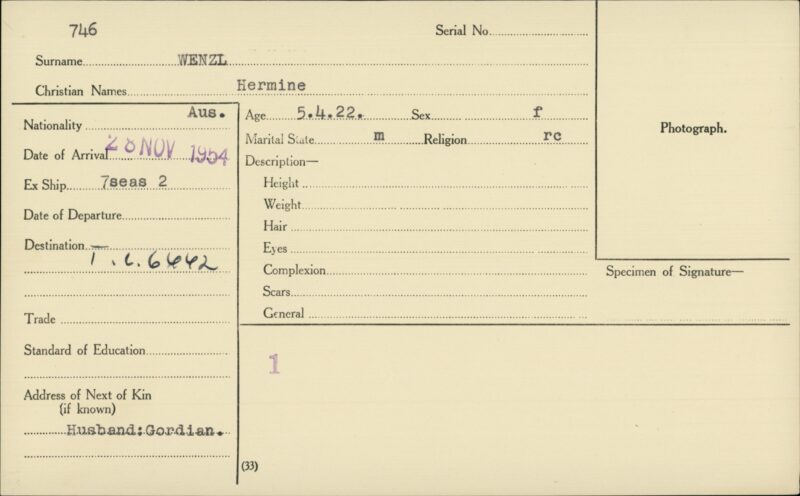 746
Serial No.
Surname WENZL
Christian Names Hermine
Nationality Aus.
Date of Arrival 28 NOV 1954
Ex Ship 7seas 2
Date of Departure
Destination T.C. 6442
Trade
Standard of Education
Address of Next of Kin
(if known)
Husband:Gordian.
Age 5.4.22. Sex f
Marital State m Religion rc
Description—
Height
Weight
Hair
Eyes
Complexion
Scars
General
Photograph.
Specimen of Signature—
1
(33)